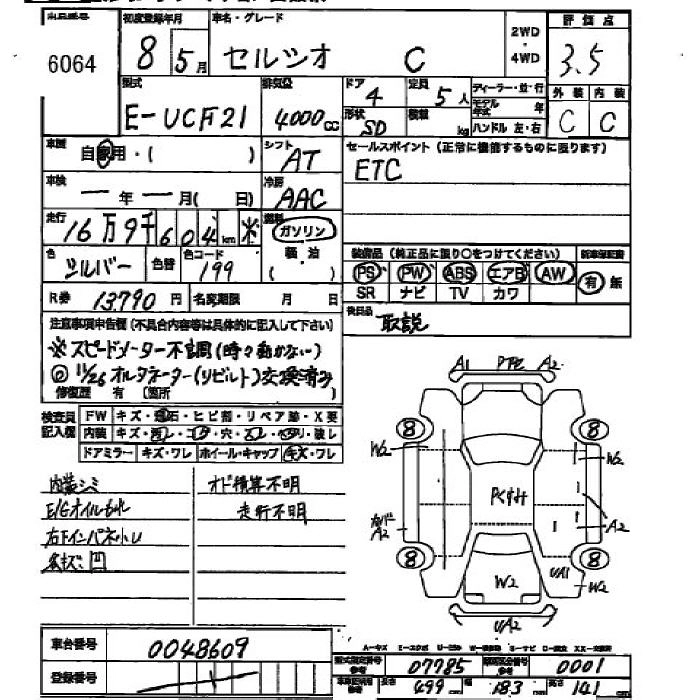 初度登録年月 車名・グレード
6064 8年5月 セルシオ C
2WD・4WD
評価点 3.5
型式 E-UCF21
排気量 4000cc
ドア 4 定員 5人
形状 SD 積載 kg
ディーラー・並・行
モデル年式 年
ハンドル 左・右
外装 内装
C C
車歴 自家用・( )
シフト AT
セールスポイント(正常に機能するものに限ります)
ETC
車検 ー年ー月( 日)
冷房 AAC
走行 16万9千604km ※
燃料 ガソリン 軽油 ( )
色 シルバー 色替 色コード 199
装備品(純正品に限り○をつけてください) 新車保証書
PS PW ABS エアB AW 有・無
SR ナビ TV カワ
R券 13,790円 名変期限 月 日
後日品 取説
注意事項申告欄(不具合内容等は具体的に記入して下さい)
※スピードメーター不調(時々動かない)
◎11/26オルタネーター(リビルト)交換済み
修復歴 有 〔箇所
検査員記入欄
FW キズ・飛石・ヒビ割・リペア跡・X要
内装 キズ・汚レ・コゲ・穴・スレ・ヘタリ・破レ
ドアミラー キズ・ワレ ホイール・キャップ キズ・ワレ
内装シミ オド積算不明
E/Gオイルもれ 走行不明
右下インパネ小レ
多キズ・凹
A1 PTE A2
8 8
W2 W2
Pくすみ
A2
A2
8 8
UA1
W2 W2
UA2
車台番号 0048609
登録番号
型式指定番号 07785 類別区分番号 0001
長さ 499 幅 183 高さ 141